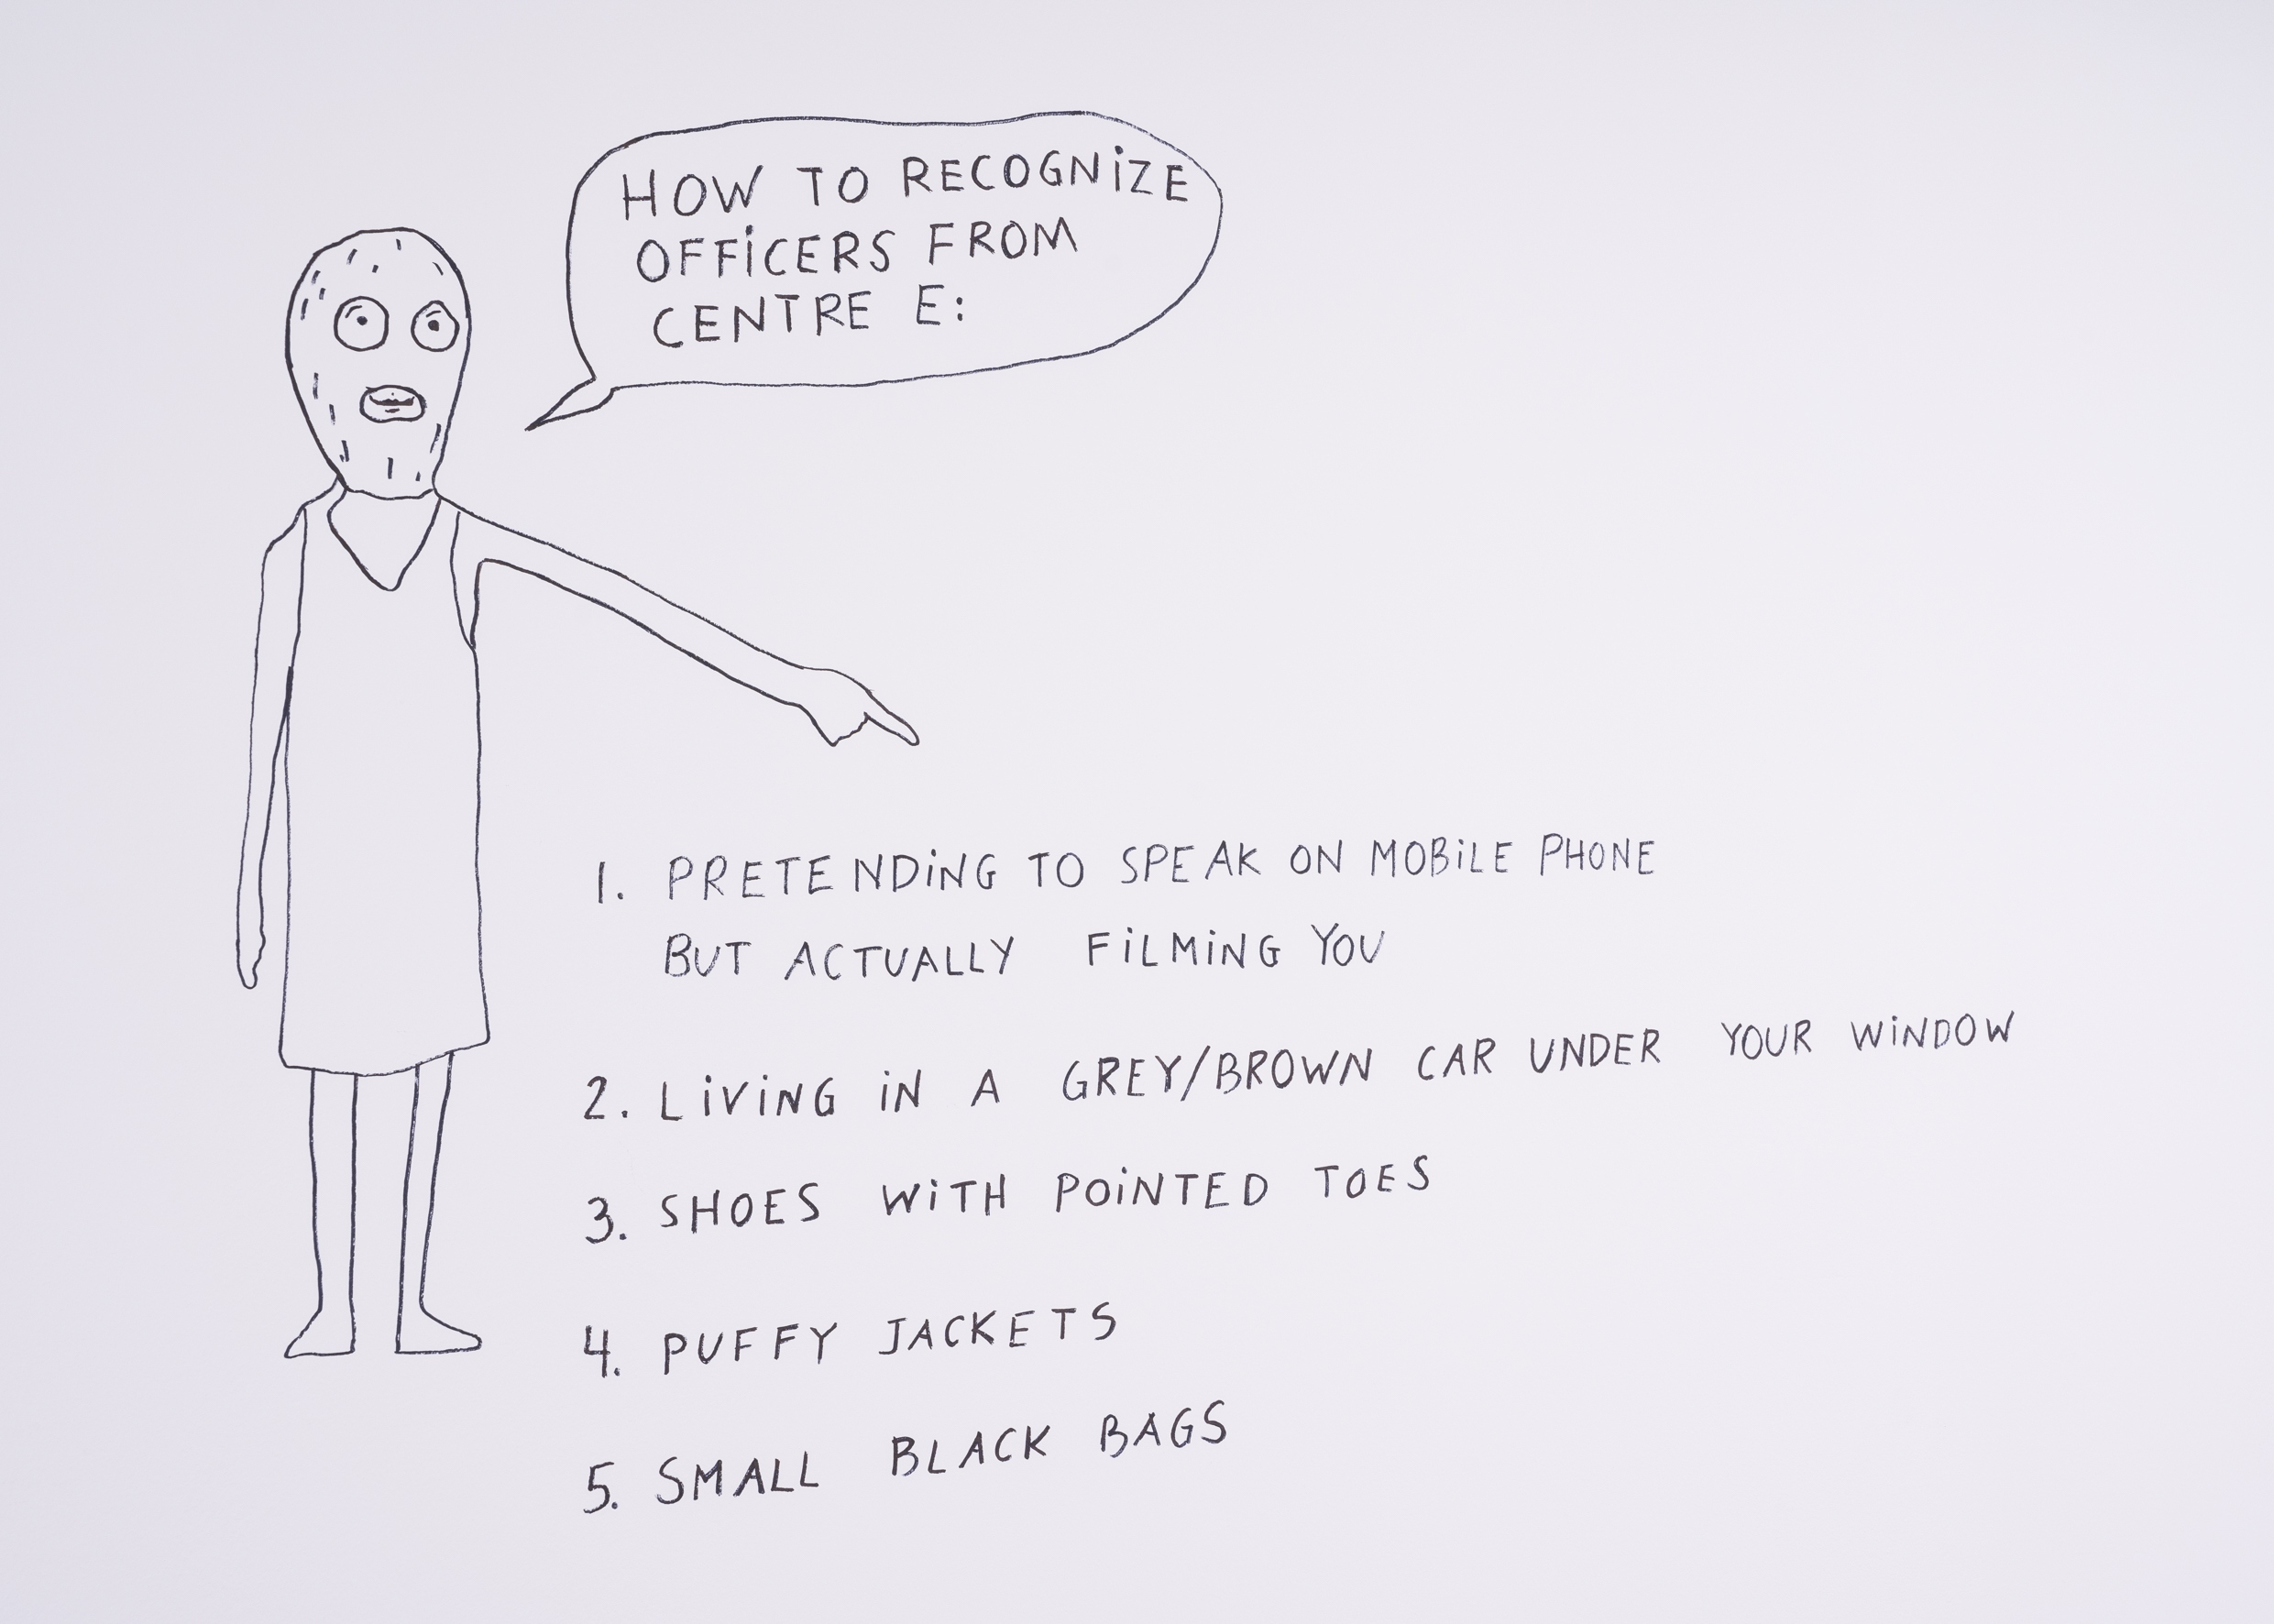 HOW TO RECOGNIZE
OFFICERS FROM
CENTRE E:
1. PRETENDING TO SPEAK ON MOBILE PHONE
BUT ACTUALLY FILMING YOU
2. LIVING IN A GREY/BROWN CAR UNDER YOUR WINDOW
3. SHOES WITH POINTED TOES
4. PUFFY JACKETS
5. SMALL BLACK BAGS